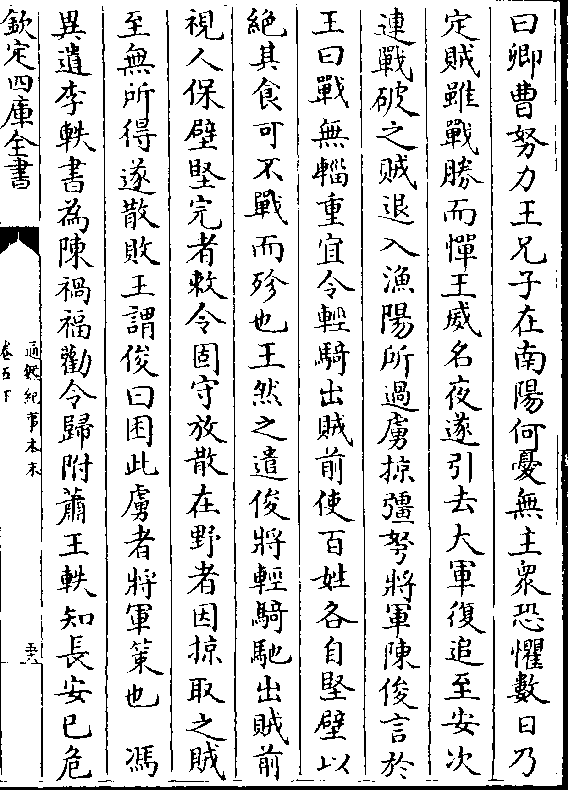 曰卿曹努力王兄子在南陽何憂無主衆恐懼數日乃
定賊雖戰勝而憚王威名夜遂引去大軍復追至安次
連戰破之賊退入漁陽所過虜掠彊弩將軍陳俊言於
王曰戰無輜重宜令輕騎出賊前使百姓各自堅壁以
絶其食可不戰而殄也王然之遣俊將輕騎馳出賊前
視人保壁堅完者敕令固守放散在野者因掠取之賊
至無所得遂散敗王謂俊曰困此虜者將軍策也 馮
異遺李軼書為陳禍福勸令歸附蕭王軼知長安已危
欽定四庫全書
通鑑紀事本末
卷五下